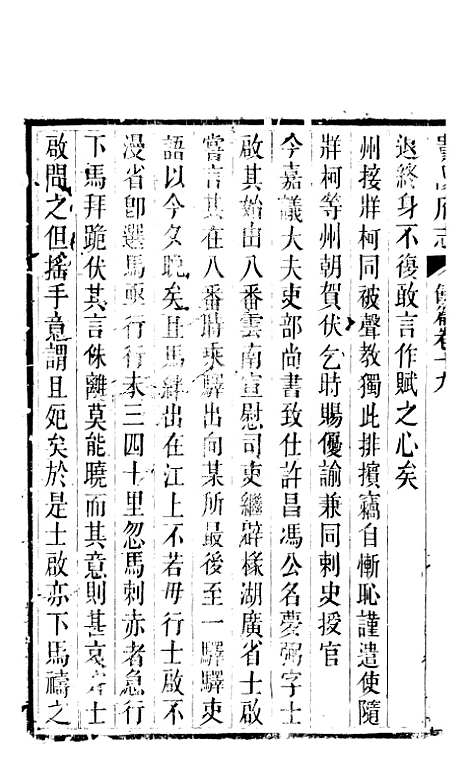 貴陽府志 餘編卷十九
退終身不復敢言作賦之心矣
州接牂柯同被聲教獨此排擯竊自慚恥謹遣使隨
牂柯等州朝賀伏乞時賜優諭兼同刺史授官
今嘉議大夫吏部尚書致仕許昌馮公名夢弼字士
啟其始由八番雲南宣慰司吏繼辟椽湖廣省士啟
嘗言其在八番時乘驛出向某所最後至一驛驛吏
語以今夕晚矣且馬絆出在江上不若毋行士啟不
漫省卽選馬亟行行未三四十里忽馬刺赤者急行
下馬拜跪伏其言侏離莫能曉而其意則甚哀士
啟問之但搖手意謂且死矣於是士啟亦下馬禱之